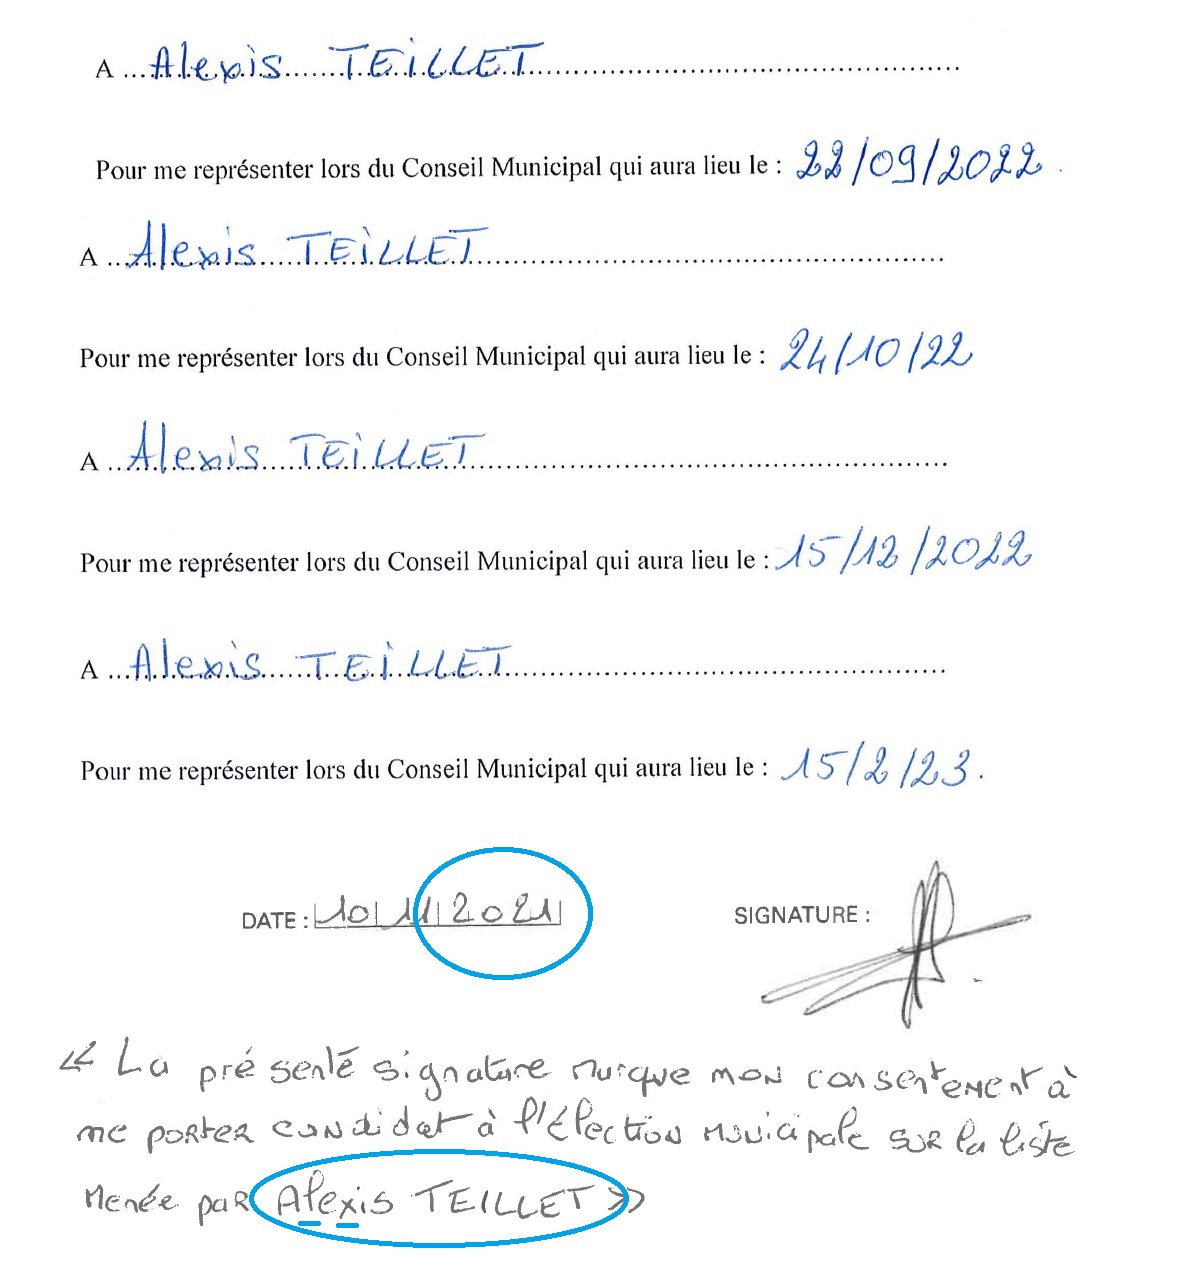 A ...Alexis TEILLET...
Pour me représenter lors du Conseil Municipal qui aura lieu le : 22/09/2022.
A ...Alexis TEILLET...
Pour me représenter lors du Conseil Municipal qui aura lieu le : 24/10/22
A ...Alexis TEILLET...
Pour me représenter lors du Conseil Municipal qui aura lieu le : 15/12/2022
A ...Alexis TEILLET...
Pour me représenter lors du Conseil Municipal qui aura lieu le : 15/2/23.
DATE : 10 11 2021 SIGNATURE :
« La présente signature marque mon consentement à
me porter candidat à l'Élection Municipale sur la liste
Menée par Alexis TEILLET »